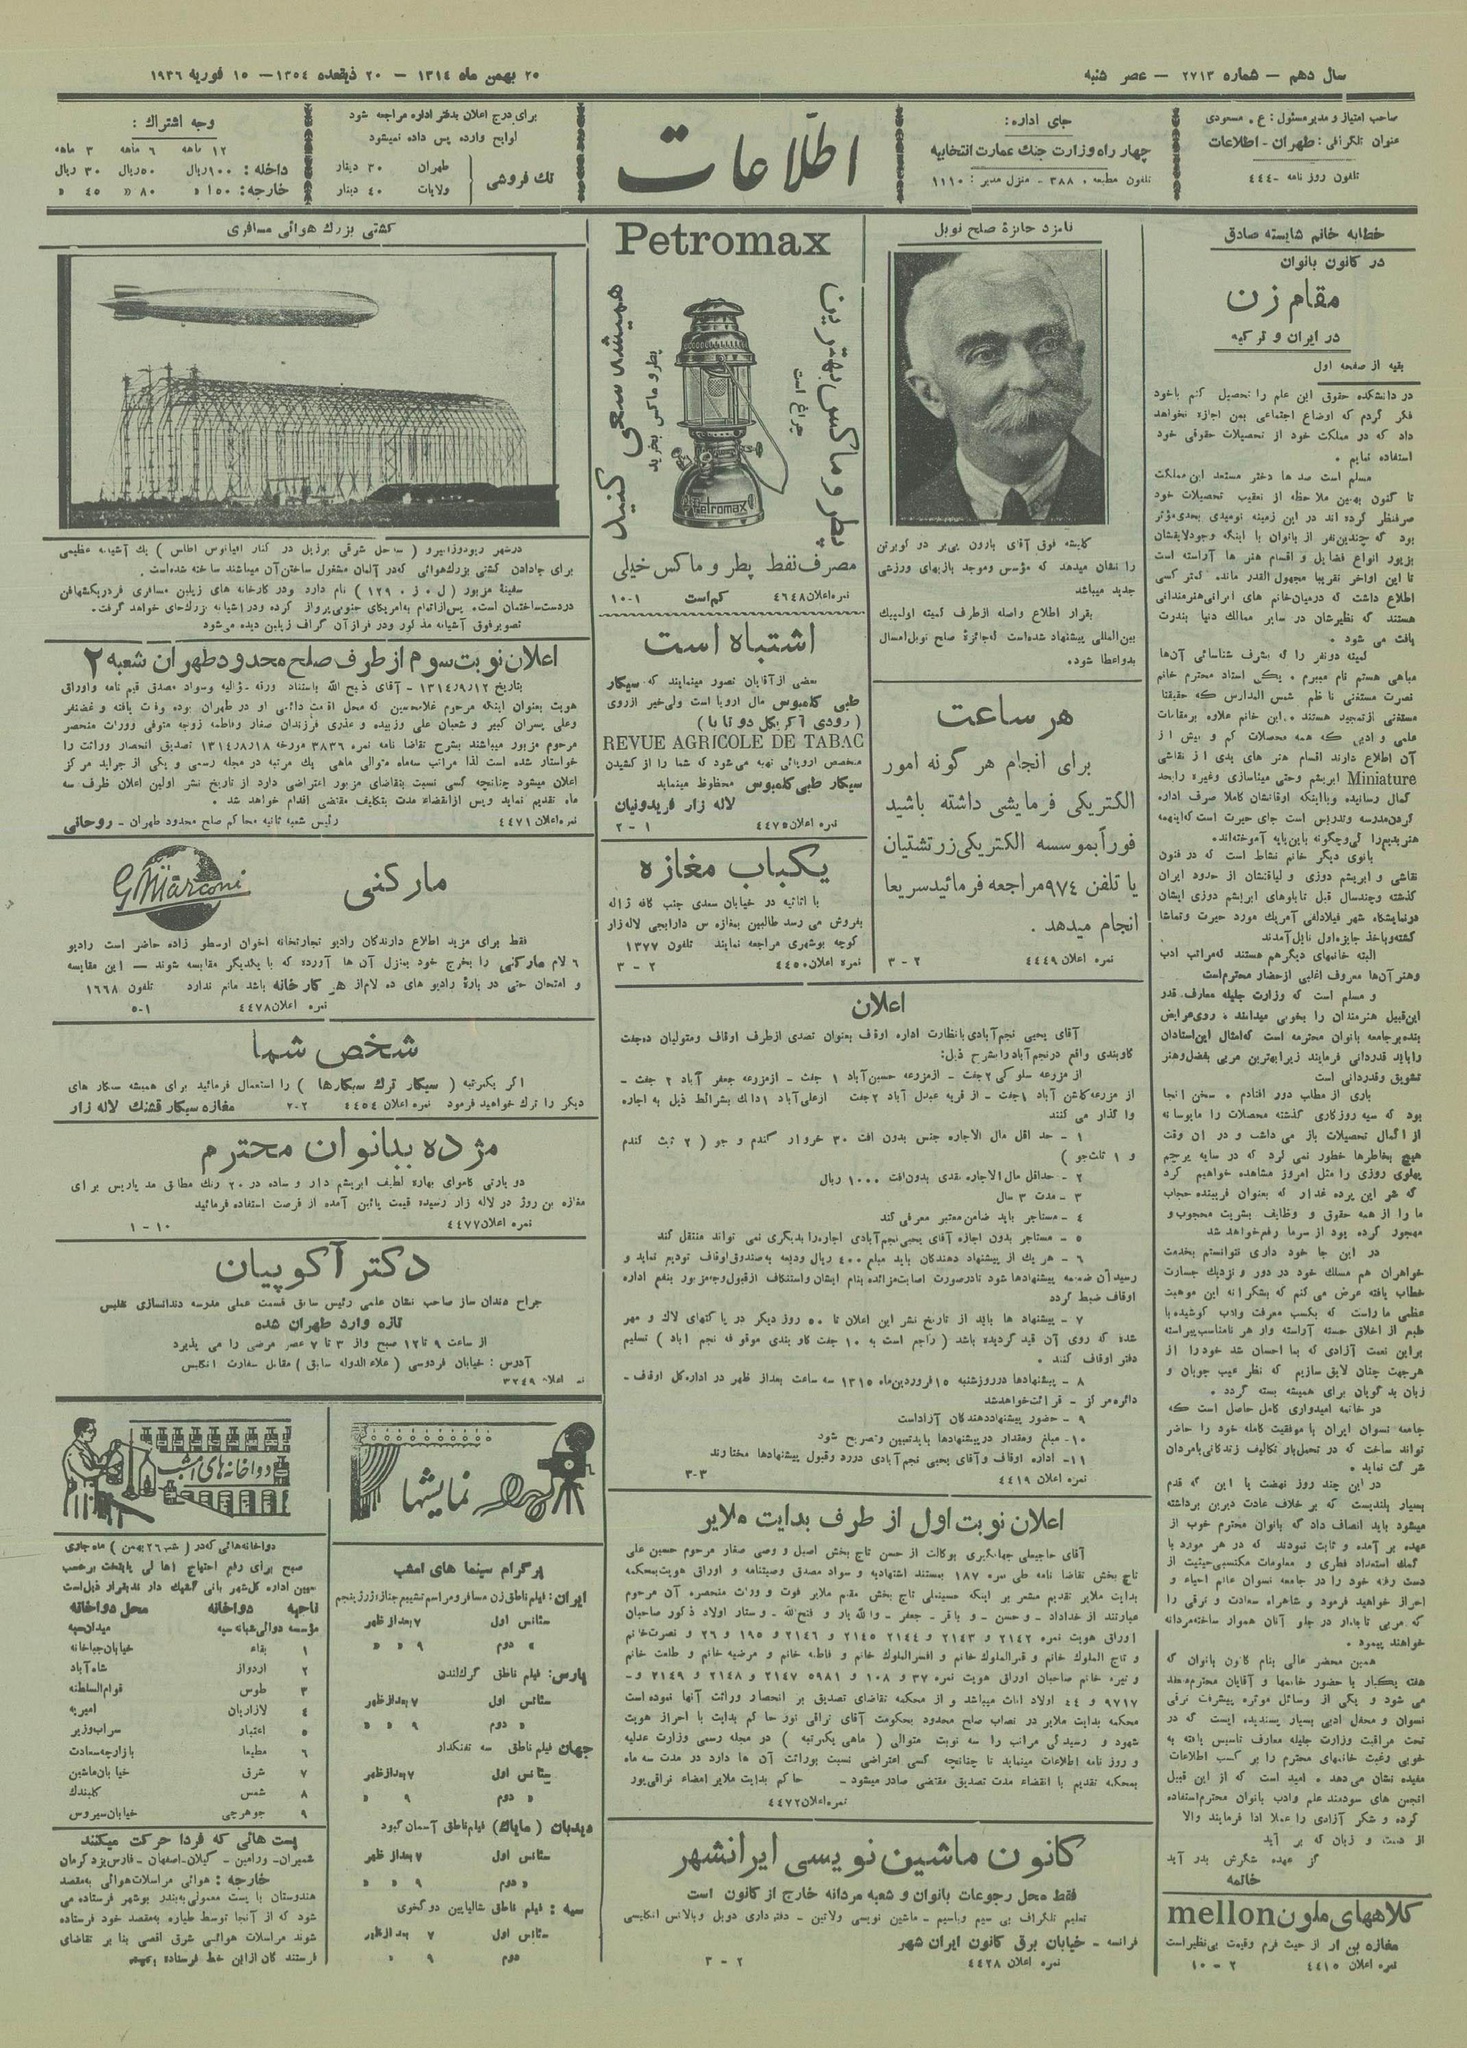 سال دهم — شماره ۲۷۱۳ — عصر شنبه
۲۵ بهمن ماه ۱۳۱۴ — ۲۰ ذیقعده ۱۳۵۴ — ۱۵ فوریه ۱۹۳۶
صاحب امتیاز و مدیر مسئول: ع. مسعودی
عنوان تلگرافی: طهران - اطلاعات
تلفون روز نامه - ۴۴۴
جای اداره:
چهار راه وزارت جنگ عمارت انتخابیه
تلفون مطبعه ۳۸۸ - منزل مدیر: ۱۱۱۰
اطلاعات
برای درج اعلان بدفتر اداره مراجعه شود
لوایح وارده پس داده نمیشود
تك فروشی
طهران ۳۰ دینار
ولایات ۴۰ دینار
وجه اشتراك:
۱۲ ماهه ۶ ماهه ۳ ماهه
داخله: ۱۰۰ ریال ۵۰ ریال ۳۰ ریال
خارجه: ۱۵۰ » ۸۰ » ۴۵ »
خطابه خانم شایسته صادق
در کانون بانوان
مقام زن
در ایران و ترکیه
بقیه از صفحه اول
در دانشکده حقوق این علم را تحصیل کنم باخود
فکر کردم که اوضاع اجتماعی بمن اجازه نخواهد
داد که در مملکت خود از تحصیلات حقوقی خود
استفاده نمایم .
مسلم است صد ها دختر مستعد این مملکت
تا کنون بهمین ملاحظه از تعقیب تحصیلات خود
صرفنظر کرده اند در این زمینه نومیدی بحدی مؤثر
بود که چندین نفر از بانوان با اینکه وجود لایقشان
بزیور انواع فضایل و اقسام هنر ها آراسته است
تا این اواخر تقریبا مجهول القدر مانده. کمتر کسی
اطلاع داشت که درمیان خانم های ایرانی هنرمندانی
هستند که نظیرشان در سایر ممالك دنیا بندرت
یافت می شود .
مباهی هستم نام میبرم . یکی استاد محترم خانم
نصرت مستغنی ناظم شمس المدارس که حقیقتا
مستغنی از تمجید هستند . این خانم علاوه بر مقامات
علمی و ادبی که همه محصلات کم و بیش از
آن اطلاع دارند اقسام هنر های یدی از نقاشی
Miniature ابریشم وحتی میناسازی وغیره را بحد
کمال رسانیده وبااینکه اوقاتشان کاملا صرف اداره
کردن مدرسه وتدریس است جای حیرت است که اینهمه
هنر بدیع را کی وچگونه باین پایه آموخته‌اند.
بانوی دیگر خانم نشاط است که در فنون
نقاشی و ابریشم دوزی و لیاقتشان از حدود ایران
گذشته وچند سال قبل تابلوهای ابریشم دوزی ایشان
درنمایشگاه شهر فیلادلفی آمریك مورد حیرت وتماشا
گشته وباخذ جایزه اول نایل آمدند
البته خانمهای دیگرهم هستند که مراتب ادب
وهنر آن‌ها معروف اغلبی از حضار محترم است
و مسلم است که وزارت جلیله معارف قدر
این قبیل هنرمندان را بخوبی میدانند . روی عرایض
بنده بر جامعه بانوان محترمه است که امثال این استادان
را باید قدردانی فرمایند زیرا بهترین مربی بفضل وهنر
تشویق وقدردانی است
باری از مطلب دور افتادم . سخن اینجا
بود که سیه روزگاری گذشته محصلات را مایوسانه
از اکمال تحصیلات باز می داشت و در آن وقت
هیچ بخاطرها خطور نمی کرد که در سایه پرچم
پهلوی روزی را مثل امروز مشاهده خواهیم کرد
که شر این پرده غدار که بعنوان فریبنده حجاب
ما را از همه حقوق و وظایف بشریت محجوب و
مهجور کرده بود از سرما رفع خواهد شد
در این جا خود داری نتوانستم بخدمت
خواهران هم مسلك خود در دور و نزدیك جسارت
خطاب یافته عرض می کنم که بشکرانه این موهبت
عظمی ما راست که بکسب معرفت وادب کوشیده با
طبع از اخلاق حسنه آراسته واز هر نامناسب پیراسته
براین نعمت آزادی که بما احسان شد خود را از
هرجهت چنان لایق سازیم که نظر عیب جویان و
زبان بد گویان برای همیشه بسته گردد .
در خاتمه امیدواری کامل حاصل است که
جامعه نسوان ایران با موفقیت کامله خود را حاضر
تواند ساخت که در تحمل بار تکالیف زندگانی بامردان
شرکت نماید .
در این چند روز نهضت با این که قدم
بسیار بلندیست که بر خلاف عادت دیرین برداشته
میشود باید انصاف داد که بانوان محترم خوب از
عهده بر آمده و ثابت نمودند که در هر مورد با
کمك استعداد فطری و معلومات مکتسبی حیثیت از
دست رفته خود را در جامعه نسوان عالم احیاء و
احراز خواهید فرمود و شاهراه سعادت و ترقی را
که مربی تاجدار در جلو آنان هموار ساخته مردانه
خواهند پیمود .
همین محضر عالی بنام کانون بانوان که
هفته یکبار با حضور خانمها و آقایان محترم منعقد
می شود و یکی از وسائل موثره پیشرفت ترقی
نسوان و محفل ادبی بسیار پسندیده ایست که در
تحت مراقبت وزارت جلیله معارف تاسیس یافته به
خوبی رغبت خانمهای محترم را بر کسب اطلاعات
مفیده نشان می دهد . امید است که از این قبیل
انجمن های سودمند علم وادب بانوان محترم استفاده
کرده و شکر آزادی را عملا ادا فرمایند والا
از دست و زبان که بر آید
کز عهده شکرش بدر آید
خاتمه
کلاههای ملون mellon
مغازه بن ار از حیث فرم وقیمت بی نظیر است
نمره اعلان ۴۴۱۵ ۲ - ۱۰
نامزد جائزة صلح نوبل
کلیشه فوق آقای بارون پی‌یر دو کوبرتن
را نشان میدهد که مؤسس وموجد بازیهای ورزشی
جدید میباشد
بقرار اطلاع واصله از طرف کمیته اولمپیك
بین‌المللی پیشنهاد شده‌است که جائزۀ صلح نوبل امسال
بدو اعطا شود.
هر ساعت
برای انجام هر گونه امور
الکتریکی فرمایشی داشته باشید
فوراً بموسسه الکتریکی زرتشتیان
یا تلفن ۹۷۴ مراجعه فرمائید سریعا
انجام میدهد .
نمره اعلان ۴۴۴۹ ۲ - ۳
Petromax
پطروماکس بهترین
چراغ است
همیشه سعی کنید
پطروماکس بخرید
Petromax
مصرف نفط پطر و ماکس خیلی
کم است
نمره اعلان ۴۶۴۸ ۱-۱۰
اشتباه است
بعضی از آقایان تصور مینمایند که سیکار
طبی کلمبوس مال اروپا است ولی خیر از روی
( رودی آکریکل دو تابا )
REVUE AGRICOLE DE TABAC
متخصص اروپائی تهیه می‌شود که شما را از کشیدن
سیکار طبی کلمبوس محظوظ مینماید
لاله زار فریدونیان
نمره اعلان ۴۴۷۵ ۱ - ۲
یکباب مغازه
با اثاثیه در خیابان سعدی جنب کافه ژاله
بفروش می رسد طالبین بمغازه س دارابجی لاله زار
کوچه بوشهری مراجعه نمایند تلفون ۱۳۷۷
نمره اعلان ۴۴۵۰ ۲ - ۳
اعلان
آقای یحیی نجم‌آبادی بانظارت اداره اوقاف بعنوان تصدی از طرف اوقاف ومتولیان ده‌جفت
گاوبندی واقع در نجم‌آباد را بشرح ذیل:
از مزرعه سلوکی ۲ جفت - از مزرعه حسین‌آباد ۱ جفت - از مزرعه جعفر آباد ۲ جفت -
از مزرعه کاشن آباد ۱ جفت - از قریه عبدل آباد ۲ جفت از علی‌آباد ۱ دانك بشرائط ذیل به اجاره
وا گذار می کنند
۱ - حد اقل مال الاجاره جنس بدون افت ۳۰ خروار گندم و جو ( ۲ ثلث گندم
و ۱ ثلث جو )
۲ - حداقل مال الاجاره نقدی بدون افت ۱۰۰۰ ریال
۳ - مدت ۳ سال
۴ - مستاجر باید ضامن معتبر معرفی کند
۵ - مستاجر بدون اجازه آقای یحیی نجم‌آبادی اجاره را بدیگری نمی تواند منتقل کند
۶ - هر یك از پیشنهاد دهندگان باید مبلغ ۴۰۰ ریال ودیعه به صندوق اوقاف تودیع نماید و
رسید آن ضمیمه پیشنهادها شود تا درصورت اصابت مزائده بنام ایشان واستنکاف از قبول وجه مزبور بنفع اداره
اوقاف ضبط گردد
۷ - پیشنهاد ها باید از تاریخ نشر این اعلان تا ۵۰ روز دیگر در پاکتهای لاك و مهر
شده که روی آن قید گردیده باشد ( راجع است به ۱۰ جفت گاو بندی موقوفه نجم آباد ) تسلیم
دفتر اوقاف کنند .
۸ - پیشنهادها در روز شنبه ۱۵ فروردین ماه ۱۳۱۵ سه ساعت بعد از ظهر در اداره کل اوقاف -
دائره مرکز - قرائت خواهد شد
۹ - حضور پیشنهاد دهندگان آزاد است
۱۰ - مبلغ ومقدار در پیشنهادها باید تعیین وتصریح شود
۱۱ - اداره اوقاف وآقای یحیی نجم‌آبادی در رد وقبول پیشنهادها مختارند
نمره اعلان ۴۴۱۹ ۳-۳
اعلان نوبت اول از طرف بدایت ملایر
آقای حاجیعلی جهانگیری بوکالت از حسن تاج بخش اصیل و وصی صغار مرحوم حسین علی
تاج بخش تقاضا نامه طی نمره ۱۸۷ بمستند اشتهادیه و سواد مصدق وصیتنامه و اوراق هویت بمحکمه
بدایت ملایر تقدیم مشعر بر اینکه حسینعلی تاج بخش مقیم ملایر فوت و وراث منحصره آن مرحوم
عبارتند از خداداد - وحسن - و باقر - جعفر - والله یار و فتح‌الله - و ستار اولاد ذکور صاحبان
اوراق هویت نمره ۲۱۴۲ و ۲۱۴۳ و ۲۱۴۴ و ۲۱۴۵ و ۲۱۴۶ و ۱۹۵ و ۲۶ و نصرت خانم
و تاج الملوك خانم و قمر الملوك خانم و افسر الملوك خانم و فاطمه خانم و مرضیه خانم و طلعت خانم
و نیره خانم صاحبان اوراق هویت نمره ۳۷ و ۱۰۸ و ۵۹۸۱ و ۲۱۴۷ و ۲۱۴۸ و ۲۱۴۹ و-
۹۷۱۷ و ۴۴ اولاد اناث میباشد و از محکمه تقاضای تصدیق بر انحصار وراثت آنها نموده است
محکمه بدایت ملایر در نصاب صلح محدود بحکومت آقای نراقی پور حاکم بدایت با احراز هویت
شهود و رسیدگی مراتب را سه نوبت متوالی ( ماهی یکمرتبه ) در مجله رسمی وزارت عدلیه
و روز نامه اطلاعات مینماید تا چنانچه کسی اعتراضی نسبت بوراثت آن ها دارد در مدت سه ماه
بمحکمه تقدیم با انقضاء مدت تصدیق مقتضی صادر میشود - حاکم بدایت ملایر امضاء نراقی پور
نمره اعلان ۴۴۷۲
کانون ماشین نویسی ایرانشهر
فقط محل رجوعات بانوان و شعبه مردانه خارج از کانون است
تعلیم تلگراف بی سیم وباسیم - ماشین نویسی ولاتین - دفترداری دوبل وبالانس انگلیسی
فرانسه - خیابان برق کانون ایران شهر
نمره اعلان ۴۴۲۸ ۲ - ۳
کشتی بزرك هوائی مسافری
درشهر ریودوژانیرو ( ساحل شرقی برزیل در کنار اقیانوس اطلس ) یك آشیانه عظیمی
برای جادادن کشتی بزرك هوائی که در آلمان مشغول ساختن آن میباشند ساخته شده‌است.
سفینهٔ مزبور ( ل . ز . ۱۲۹ ) نام دارد ودر کارخانه های زپلین مسافری فردریکشهافن
در دست ساختمان است. پس از اتمام به امریکای جنوبی پرواز کرده ودر آشیانه بزرك جای خواهد گرفت.
تصویر فوق آشیانه مذکور ودر فراز آن گراف زپلین دیده می‌شود
اعلان نوبت سوم از طرف صلح محدود طهران شعبه ۲
بتاریخ ۱۳۱۴/۹/۱۲ - آقای ذبیح الله باستناد ورقه سؤالیه وسواد مصدق قیم نامه واوراق
هویت بعنوان اینکه مرحوم غلامحسین که محل اقامت دائمی او در طهران بوده وفات یافته و غضنفر
وعلی پسران کبیر و شعبان علی وزبیده و عذری فرزندان صغار وفاطمه زوجه متوفی ووراث منحصر
مرحوم مزبور میباشند بشرح تقاضا نامه نمره ۳۸۳۶ مورخه ۱۳۱۴/۸/۱۸ تصدیق انحصار وراثت را
خواستار شده است لذا مراتب سه‌ماه متوالی ماهی یك مرتبه در مجله رسمی و یکی از جراید مرکز
اعلان میشود چنانچه کسی نسبت بتقاضای مزبور اعتراضی دارد از تاریخ نشر اولین اعلان ظرف سه
ماه تقدیم نماید وپس از انقضاء مدت بتکلیف مقتضی اقدام خواهد شد .
نمره اعلان ۴۴۷۱ رئیس شعبه ثانیه محاکم صلح محدود طهران - روحانی
مارکنی
G Marconi
فقط برای مزید اطلاع دارندگان رادیو تجارتخانه اخوان ارسطو زاده حاضر است رادیو
۶ لام مارکنی را بخرج خود بمنزل آن ها آورده که با یکدیگر مقایسه شوند - این مقایسه
و امتحان حتی در بارهٔ رادیو های ده لام از هر کارخانه باشد مانع ندارد تلفون ۱۶۶۸
نمره اعلان ۴۴۷۸ ۱-۵
شخص شما
اگر یکمرتبه ( سیکار ترك سیکارها ) را استعمال فرمائید برای همیشه سیکار های
دیگر را ترك خواهید فرمود نمره اعلان ۴۴۵۴ ۲-۲ مغازه سیکار قشنك لاله زار
مژده ببانوان محترم
دو پارتی کاموای بهاره لطیف ابریشم دار و ساده در ۲۰ رنك مطابق مد پاریس برای
مغازه بن روژ در لاله زار رسیده قیمت پائین آمده از فرصت استفاده فرمائید
نمره اعلان ۴۴۷۷ ۱ - ۱۰
دکتر آکوپیان
جراح دندان ساز صاحب نشان علمی رئیس سابق قسمت عملی مدرسه دندانسازی تفلیس
تازه وارد طهران شده
از ساعت ۹ تا ۱۲ صبح واز ۳ تا ۷ عصر مرضی را می پذیرد
آدرس : خیابان فردوسی ( علاءالدوله سابق ) مقابل سفارت انگلیس
نمره اعلان ۳۲۴۹
نمایشها
پرگرام سینما های امشب
ایران: فیلم ناطق زن مسافر ومراسم تشییع جنازه ژرژ پنجم
سئانس اول ۷ بعد از ظهر
» دوم ۹ » »
پارس: فیلم ناطق گرك لندن
سئانس اول ۷ بعد از ظهر
» دوم ۹ » »
جهان فیلم ناطق سه تفنگدار
سئانس اول ۷ بعد از ظهر
» دوم ۹ »
دیدبان ( مایاك) فیلم ناطق آسمان کبود
سئانس اول ۷ بعد از ظهر
» دوم ۹ » »
سپه : فیلم ناطق شالیاپین دو کخوی
سئانس اول ۷ بعد از ظهر
دوم ۹ »
دواخانه‌های امشب
دواخانه هائی که در ( شب ۲۶ بهمن ) ماه جاری
صبح برای رفع احتیاج اهالی پایتخت برحسب
تعیین اداره کل شهربانی کشیك دارند بقرار ذیل است
ناحیه دواخانه محل دواخانه
مؤسسه دوائی شبانه سپه میدان سپه
۱ بقاء خیابان جباخانه
۲ اردواز شاه آباد
۳ طوس قوام السلطنه
۴ لازاریان امیریه
۵ اعتبار سراب وزیر
۶ مطیعا بازارچه سعادت
۷ شرق خیابان ماشین
۸ شمس گلبندك
۹ جوهرچی خیابان سیروس
پست هائی که فردا حرکت میکنند
شمیران- ورامین - گیلان- اصفهان - فارس یزد کرمان
خارجه : هوائی مراسلات هوائی به مقصد
هندوستان با پست معمولی به بندر بوشهر فرستاده می
شود که از آنجا توسط طیاره به مقصد خود فرستاده
شوند مراسلات هوائی شرق اقصی بنا بر تقاضای
فرستندگان از این خط فرستاده